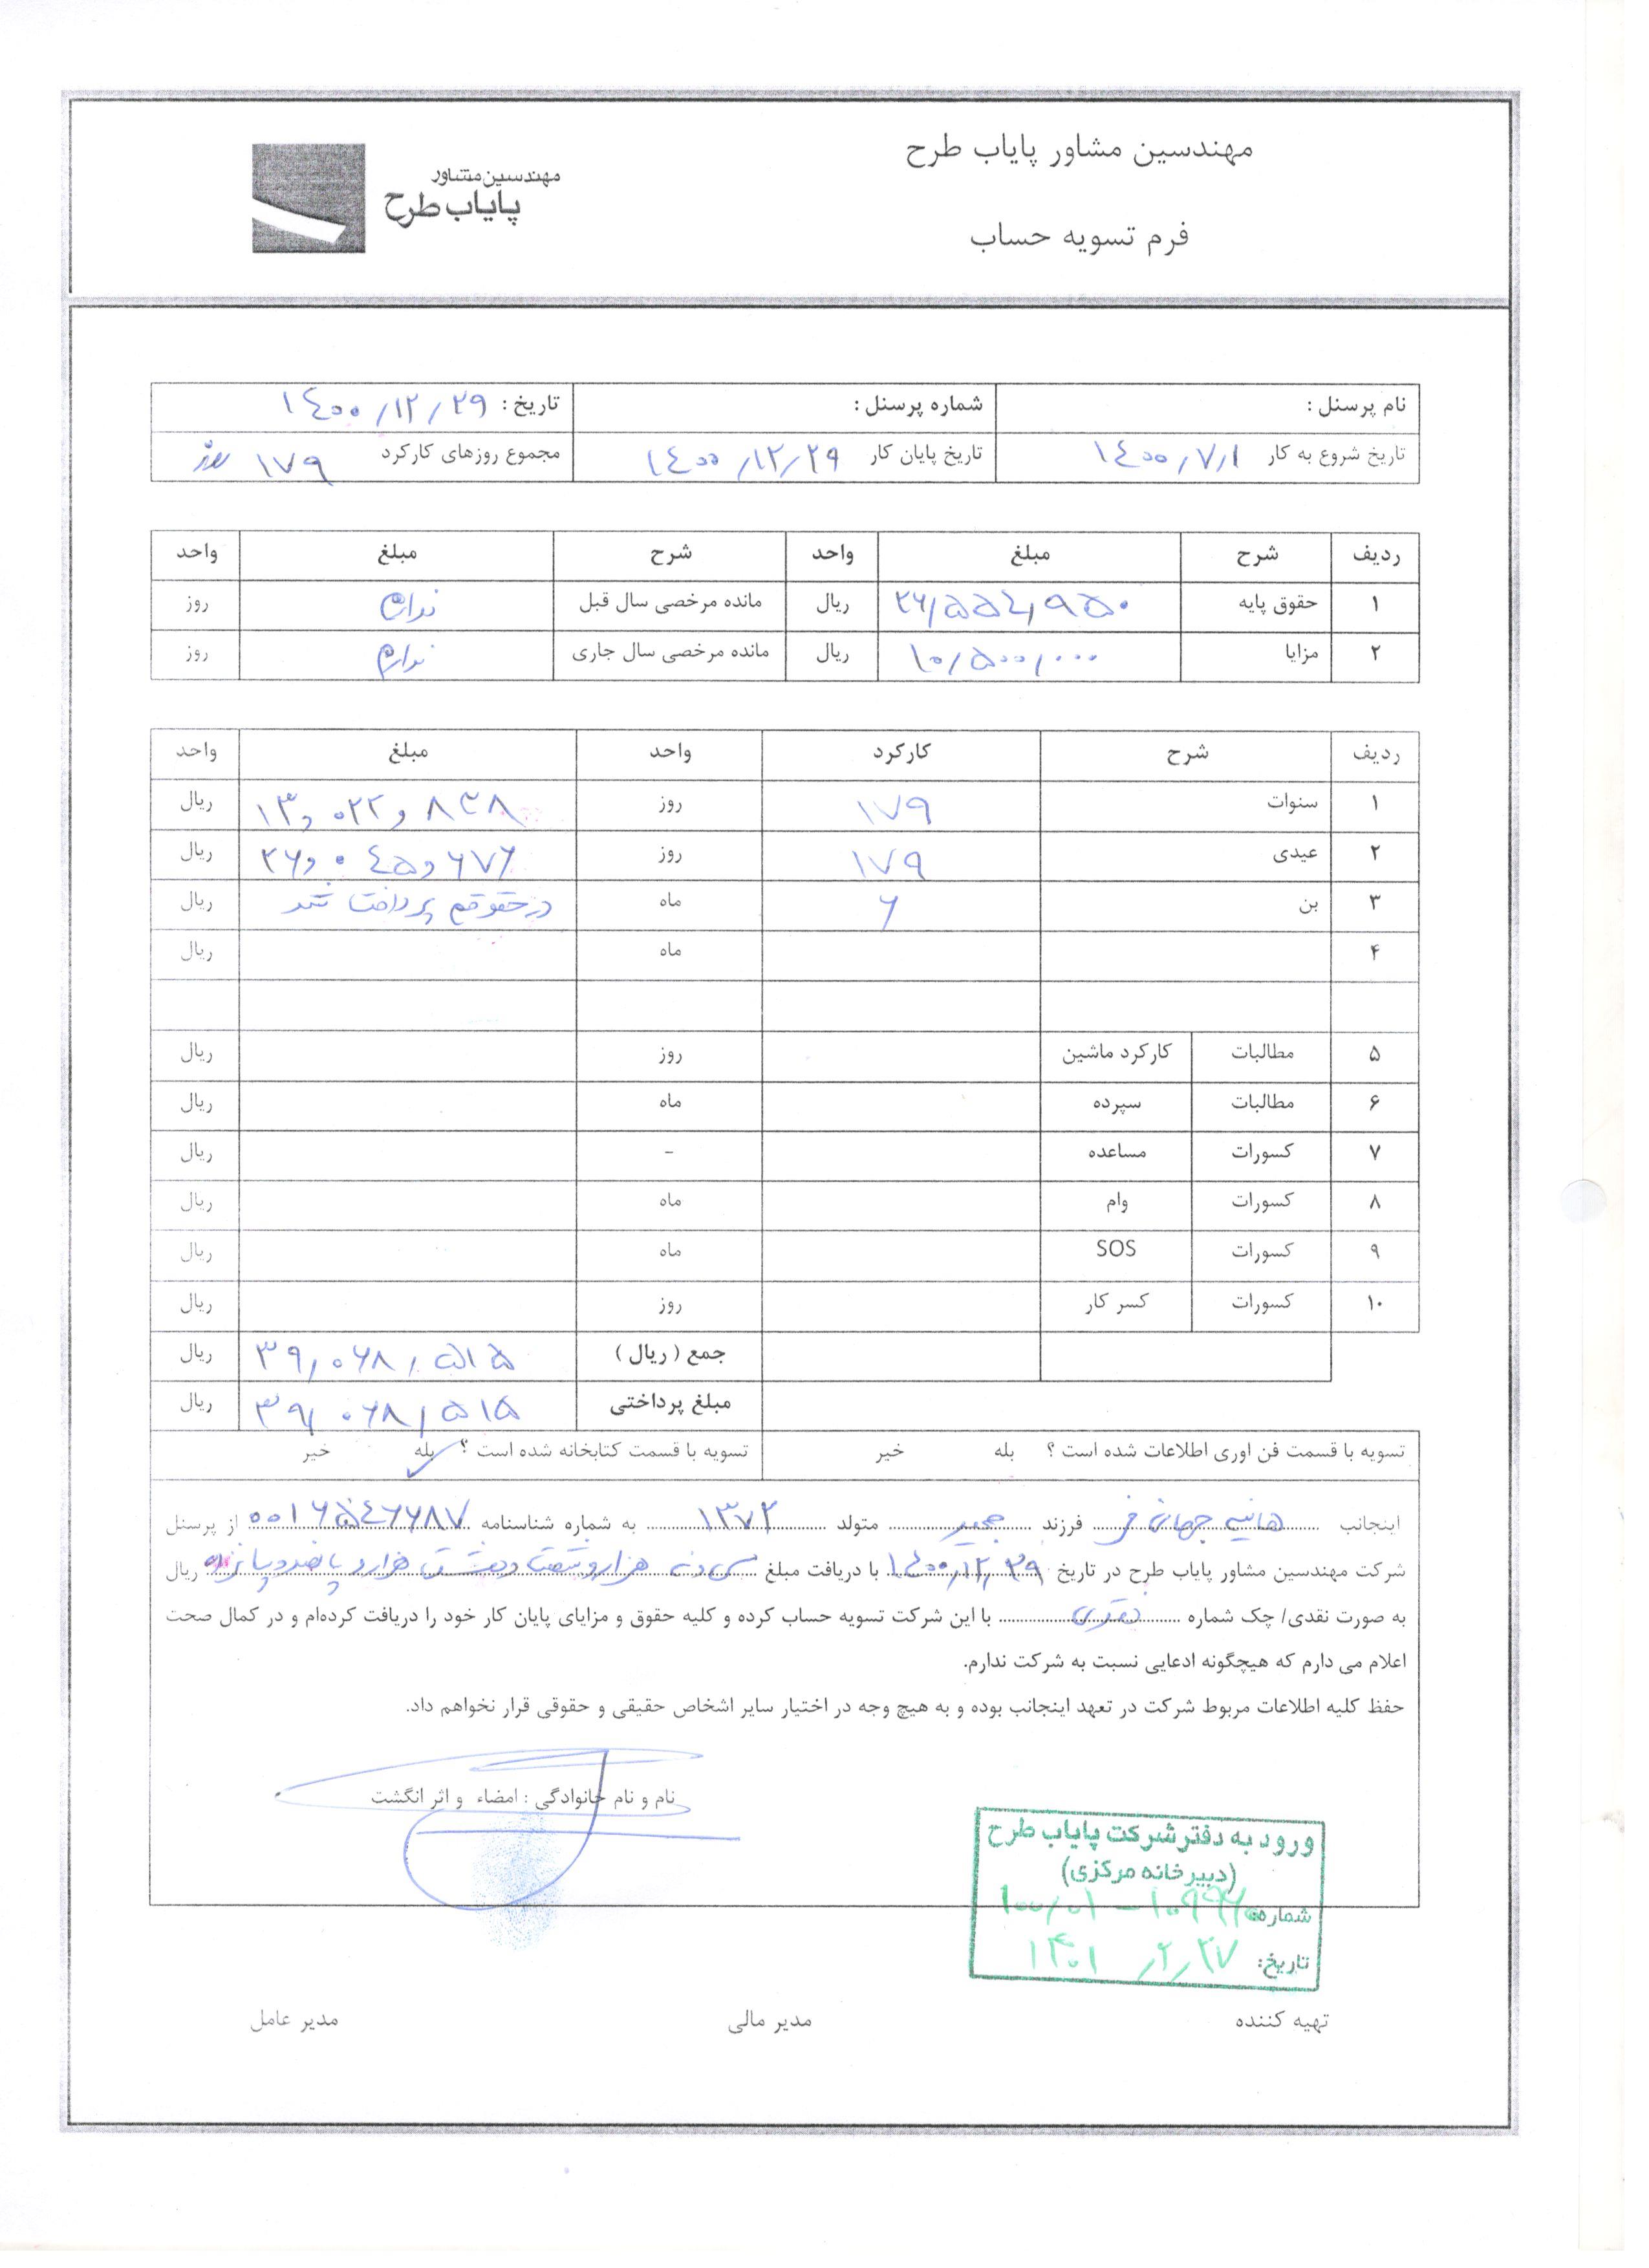 مهندسین مشاور پایاب طرح
مهندسین مشاور
پایاب طرح
فرم تسویه حساب
نام پرسنل : شماره پرسنل : تاریخ : ۱۴۰۰/۱۲/۲۹
تاریخ شروع به کار ۱۴۰۰/۷/۱ تاریخ پایان کار ۱۴۰۰/۱۲/۲۹ مجموع روزهای کارکرد ۱۷۹ روز
ردیف شرح مبلغ واحد شرح مبلغ واحد
۱ حقوق پایه ۲۶/۵۵۴/۹۵۰ ریال مانده مرخصی سال قبل ندارم روز
۲ مزایا ۱۰/۵۰۰/۰۰۰ ریال مانده مرخصی سال جاری ندارم روز
ردیف شرح کارکرد واحد مبلغ واحد
۱ سنوات ۱۷۹ روز ۱۳,۰۲۲,۸۳۸ ریال
۲ عیدی ۱۷۹ روز ۲۶,۰۴۵,۶۷۶ ریال
۳ بن ۶ ماه در حقوقم پرداخت شد ریال
۴ ماه ریال
۵ مطالبات کارکرد ماشین روز ریال
۶ مطالبات سپرده ماه ریال
۷ کسورات مساعده - ریال
۸ کسورات وام ماه ریال
۹ کسورات SOS ماه ریال
۱۰ کسورات کسر کار روز ریال
جمع ( ریال ) ۳۹/۰۶۸/۵۱۵ ریال
مبلغ پرداختی ۳۹/۰۶۸/۵۱۵ ریال
تسویه با قسمت فن اوری اطلاعات شده است ؟ بله خیر تسویه با قسمت کتابخانه شده است ؟ بله ✓ خیر
اینجانب هانیه جهانی فر فرزند مجید متولد ۱۳۷۲ به شماره شناسنامه ۰۰۱۶۵۴۶۶۸۷ از پرسنل
شرکت مهندسین مشاور پایاب طرح در تاریخ ۱۴۰۰/۱۲/۲۹ با دریافت مبلغ سی و نه هزار و شصت و هشت هزار و پانصد و پانزده ریال
به صورت نقدی/ چک شماره نقدی با این شرکت تسویه حساب کرده و کلیه حقوق و مزایای پایان کار خود را دریافت کرده‌ام و در کمال صحت
اعلام می دارم که هیچگونه ادعایی نسبت به شرکت ندارم.
حفظ کلیه اطلاعات مربوط شرکت در تعهد اینجانب بوده و به هیچ وجه در اختیار سایر اشخاص حقیقی و حقوقی قرار نخواهم داد.
نام و نام خانوادگی : امضاء و اثر انگشت
ورود به دفتر شرکت پایاب طرح
(دبیرخانه مرکزی)
شماره:
تاریخ: ۱۴۰۱/۲/۲۷
تهیه کننده مدیر مالی مدیر عامل